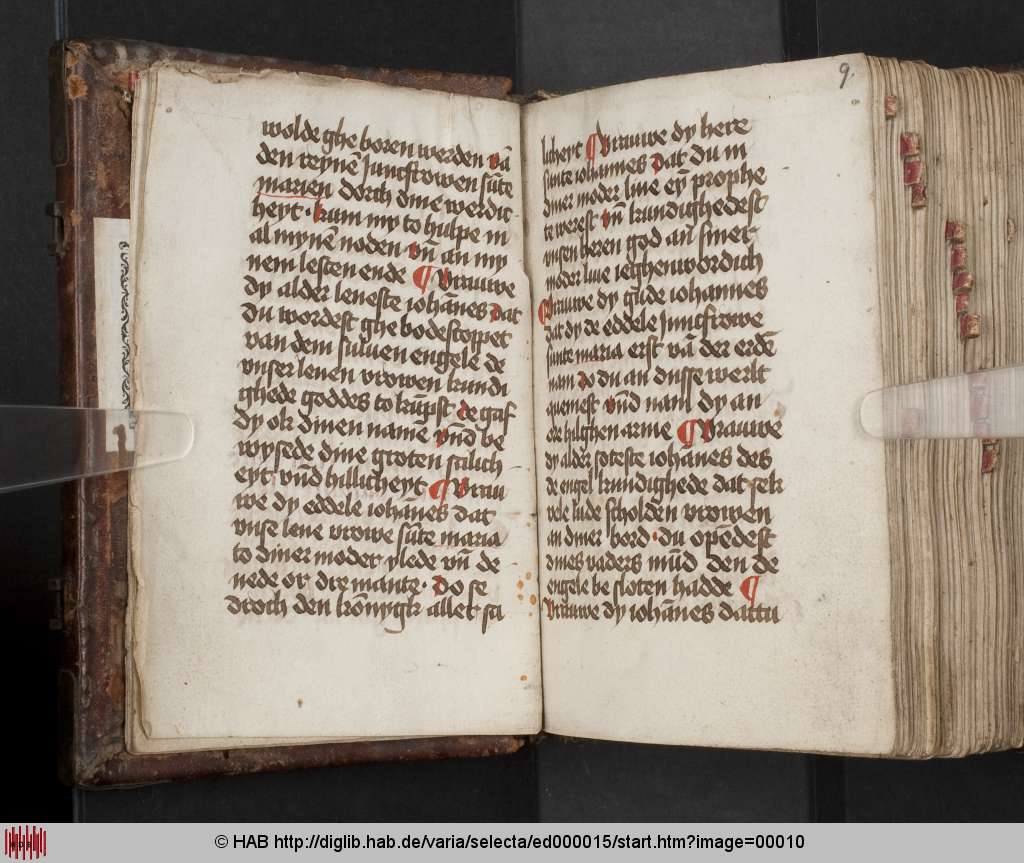 wolde ghe boren werden vā
den reynē Juncfrowen sūte
marien dorch dine werdic
heyt · kum my to hulpe in
al mynē noden vn̄ an my
nem lesten ende ¶ Vrauwe
dy alder leueste iohānes dat
du wordest ghe bodescoppet
van dem suluen engele de
vnser leuen vrowen kundi
ghede goddes to kūpst de gaf
dy ok dinen namē vn̄d be
wysede dine groten salich
eyt vn̄d hillicheyt ¶ Vrau
we dy eddele iohānes dat
vnse leue vrowe sūte maria
to diner moder ylede vn̄ de
nede or dre mante · Do se
droch den kōnygk aller sa
9.
licheyt ¶ Vrauwe dy here
sunte iohannes dat du in
diner moder liue eyn̄ prophe
te werest vn̄ kundighedest
vnsen heren god an siner
moder liue ieghenwordich
¶ Vrauwe dy gude iohannes
dat dy de eddele Juncfrowe
sunte maria erst vā der erdē
nam do du an dusse werlt
quemest vn̄d nam dy an
ore hilghen arme ¶ Vrauwe
dy alder soteste iohānes des
de engel kundighede dat sek
vele lude scholden vrowen
an diner bord · du opēdest
dines vaders mūd den de
engele be sloten hadde ¶
Vrauwe dy iohānes dattu
© HAB http://diglib.hab.de/varia/selecta/ed000015/start.htm?image=00010